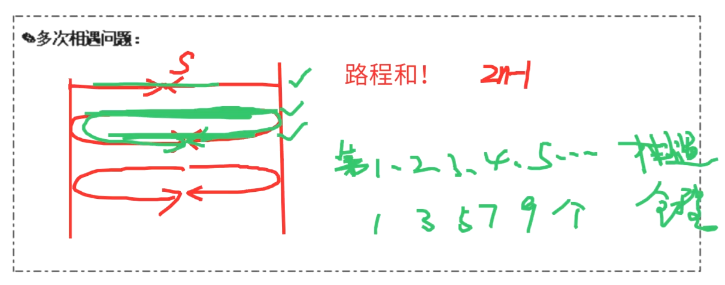 多次相遇问题：
S
路程和！ 2n-1
第1、2、3、4、5… 相遇
1 3 5 7 9个 全程